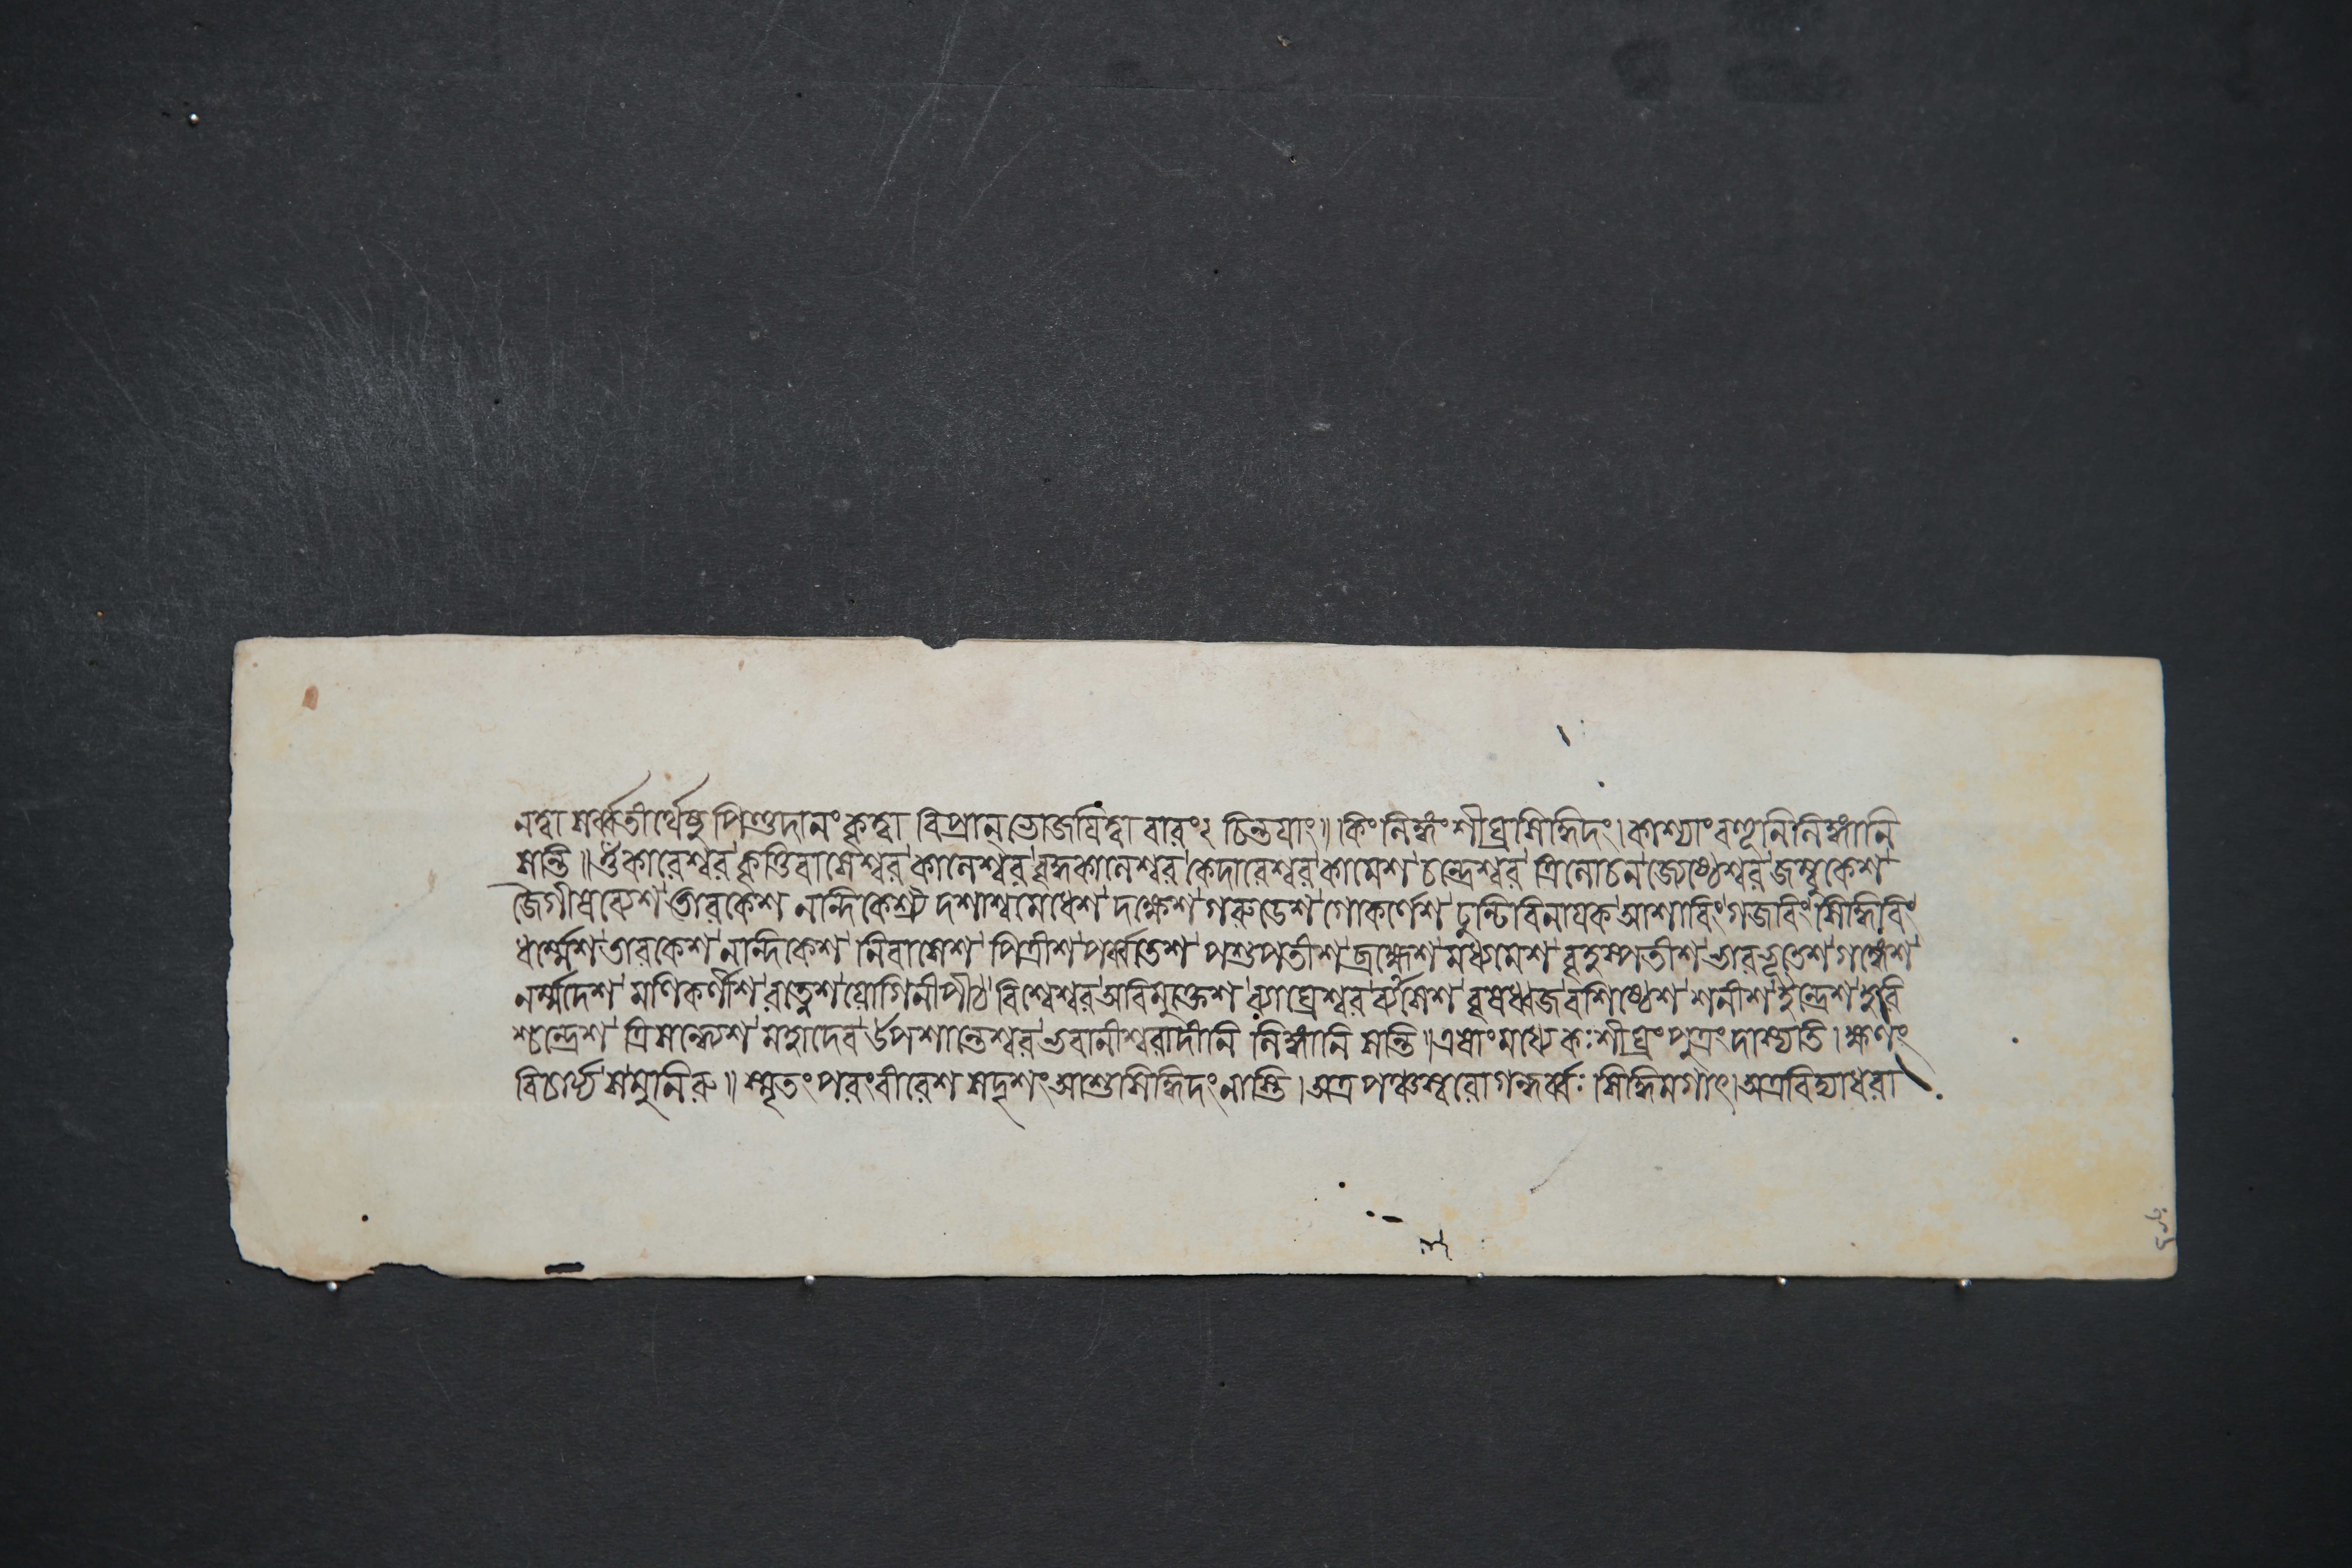 নত্বা সর্ব্বতীর্থেষু পিণ্ডদানং কৃত্বা বিপ্রান্ ভোজযিত্বা বারং২ চিন্তযাং॥ কিং লিঙ্গং শীঘ্রসিদ্ধিদং। কাশ্যাং বহূনি লিঙ্গানি
সন্তি॥ ওঁকারেশ্বর' কৃত্তিবাসেশ্বর' কালেশ্বর' বৃদ্ধকালেশ্বর' কেদারেশ্বর' কামেশ' চন্দ্রেশ্বর' ত্রিলোচন' জ্যেষ্ঠেশ্বর' জম্বুকেশ'
জৈগীষব্যেশ' তারকেশ নন্দিকেশ্বর দশাশ্বমেধেশ' দক্ষেশ' গরুডেশ' গোকর্ণেশ' ঢুন্টিবিনাযক' আশাবিং' গজাবিং' সিদ্ধিবিং'
ধর্ম্মেশ' তারকেশ' নন্দিকেশ' নিবাসেশ' পিত্রীশ' পর্ব্বতেশ' পশুপতীশ' ব্রহ্মেশ' মধ্যমেশ' বৃহস্পতীশ' ভারভূতেশ' গঙ্গেশ'
নর্ম্মদেশ' মণিকর্ণীশ' রত্নেশ' যোগিনীপীঠ' বিশ্বেশ্বর' অবিমুক্তেশ' ব্যাঘ্রেশ্বর' ব্যাসেশ' বৃষধ্বজ' বশিষ্ঠেশ' শনীশ'
শ্চন্দ্রেশ' ত্রিসন্ধ্যেশ' মহাদেব' উপশান্তেশ্বর' ভবানীশ্বরাদীনি লিঙ্গানি সন্তি॥ এষাং মধ্যে কঃ শীঘ্রং পুত্রং দাস্যতি। ক্ষণং
বিচার্য্য স মুনিরু॥ স্মৃতং পরং বীরেশ সদৃশং আশু সিদ্ধিদং নাস্তি। অত্র পঞ্চস্বরো গন্ধর্ব্বঃ সিদ্ধিমগাৎ। অত্র বিদ্যাধরা